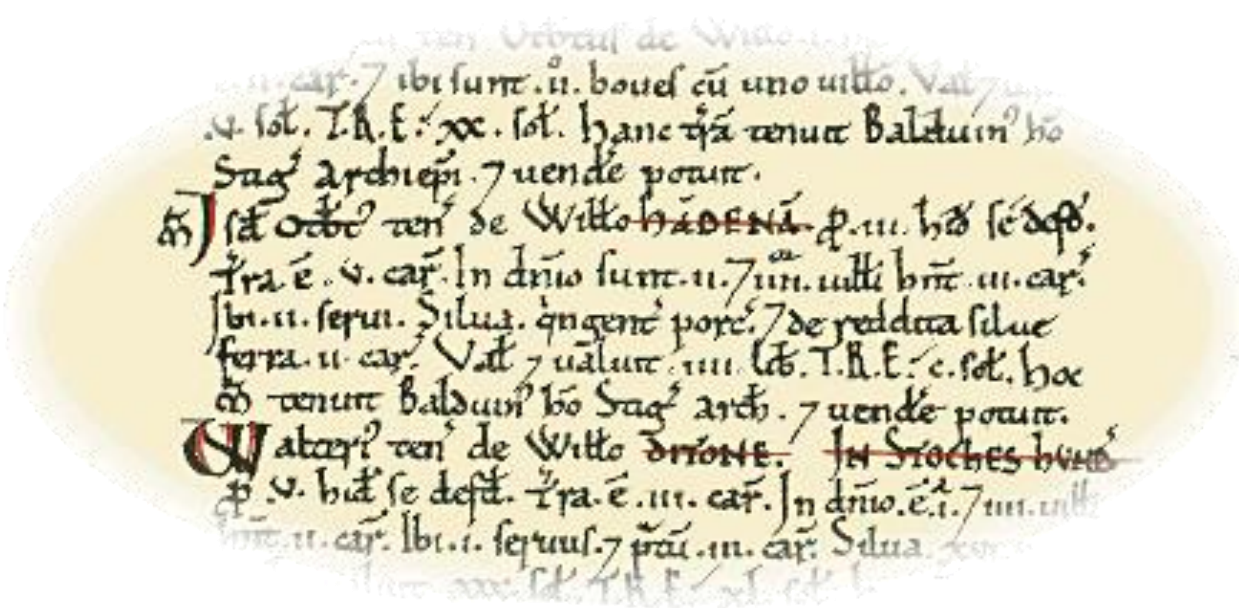 ten Otbtus de Willo
car. ⁊ ibi sunt .ii. boues cū uno uillo. Val ⁊
.v. sol. T.R.E: xx. sol. hanc trā tenuit Balduin hō
Stig Archiepi. ⁊ uendē potuit.
m̄ Isd Otbt ten de Willo HĀDENĀ. ꝑ .iii. hid se defd.
Tra.ē .v. car. In dnio sunt .ii. ⁊ iiii. uilli hnt .iii. car.
Ibi .ii. serui. Silua. qngent porc. ⁊ de reddita silue
ferra .ii. car. Val ⁊ ualuit .iiii. lib. T.R.E: c. sol. hoc
m̄ tenuit Balduin hō Stig arch. ⁊ uendē potuit.
Walter ten de Willo DITONE. IN STOCHES HUND
ꝑ .v. hid se defd. Tra.ē .iii. car. In dnio.ē.i. ⁊ iiii. uilli
hnt .ii. car. Ibi .i. seruus. ⁊ ptū .iii. car. Silua.
xxx. sol. T.R.E: xl. sol.